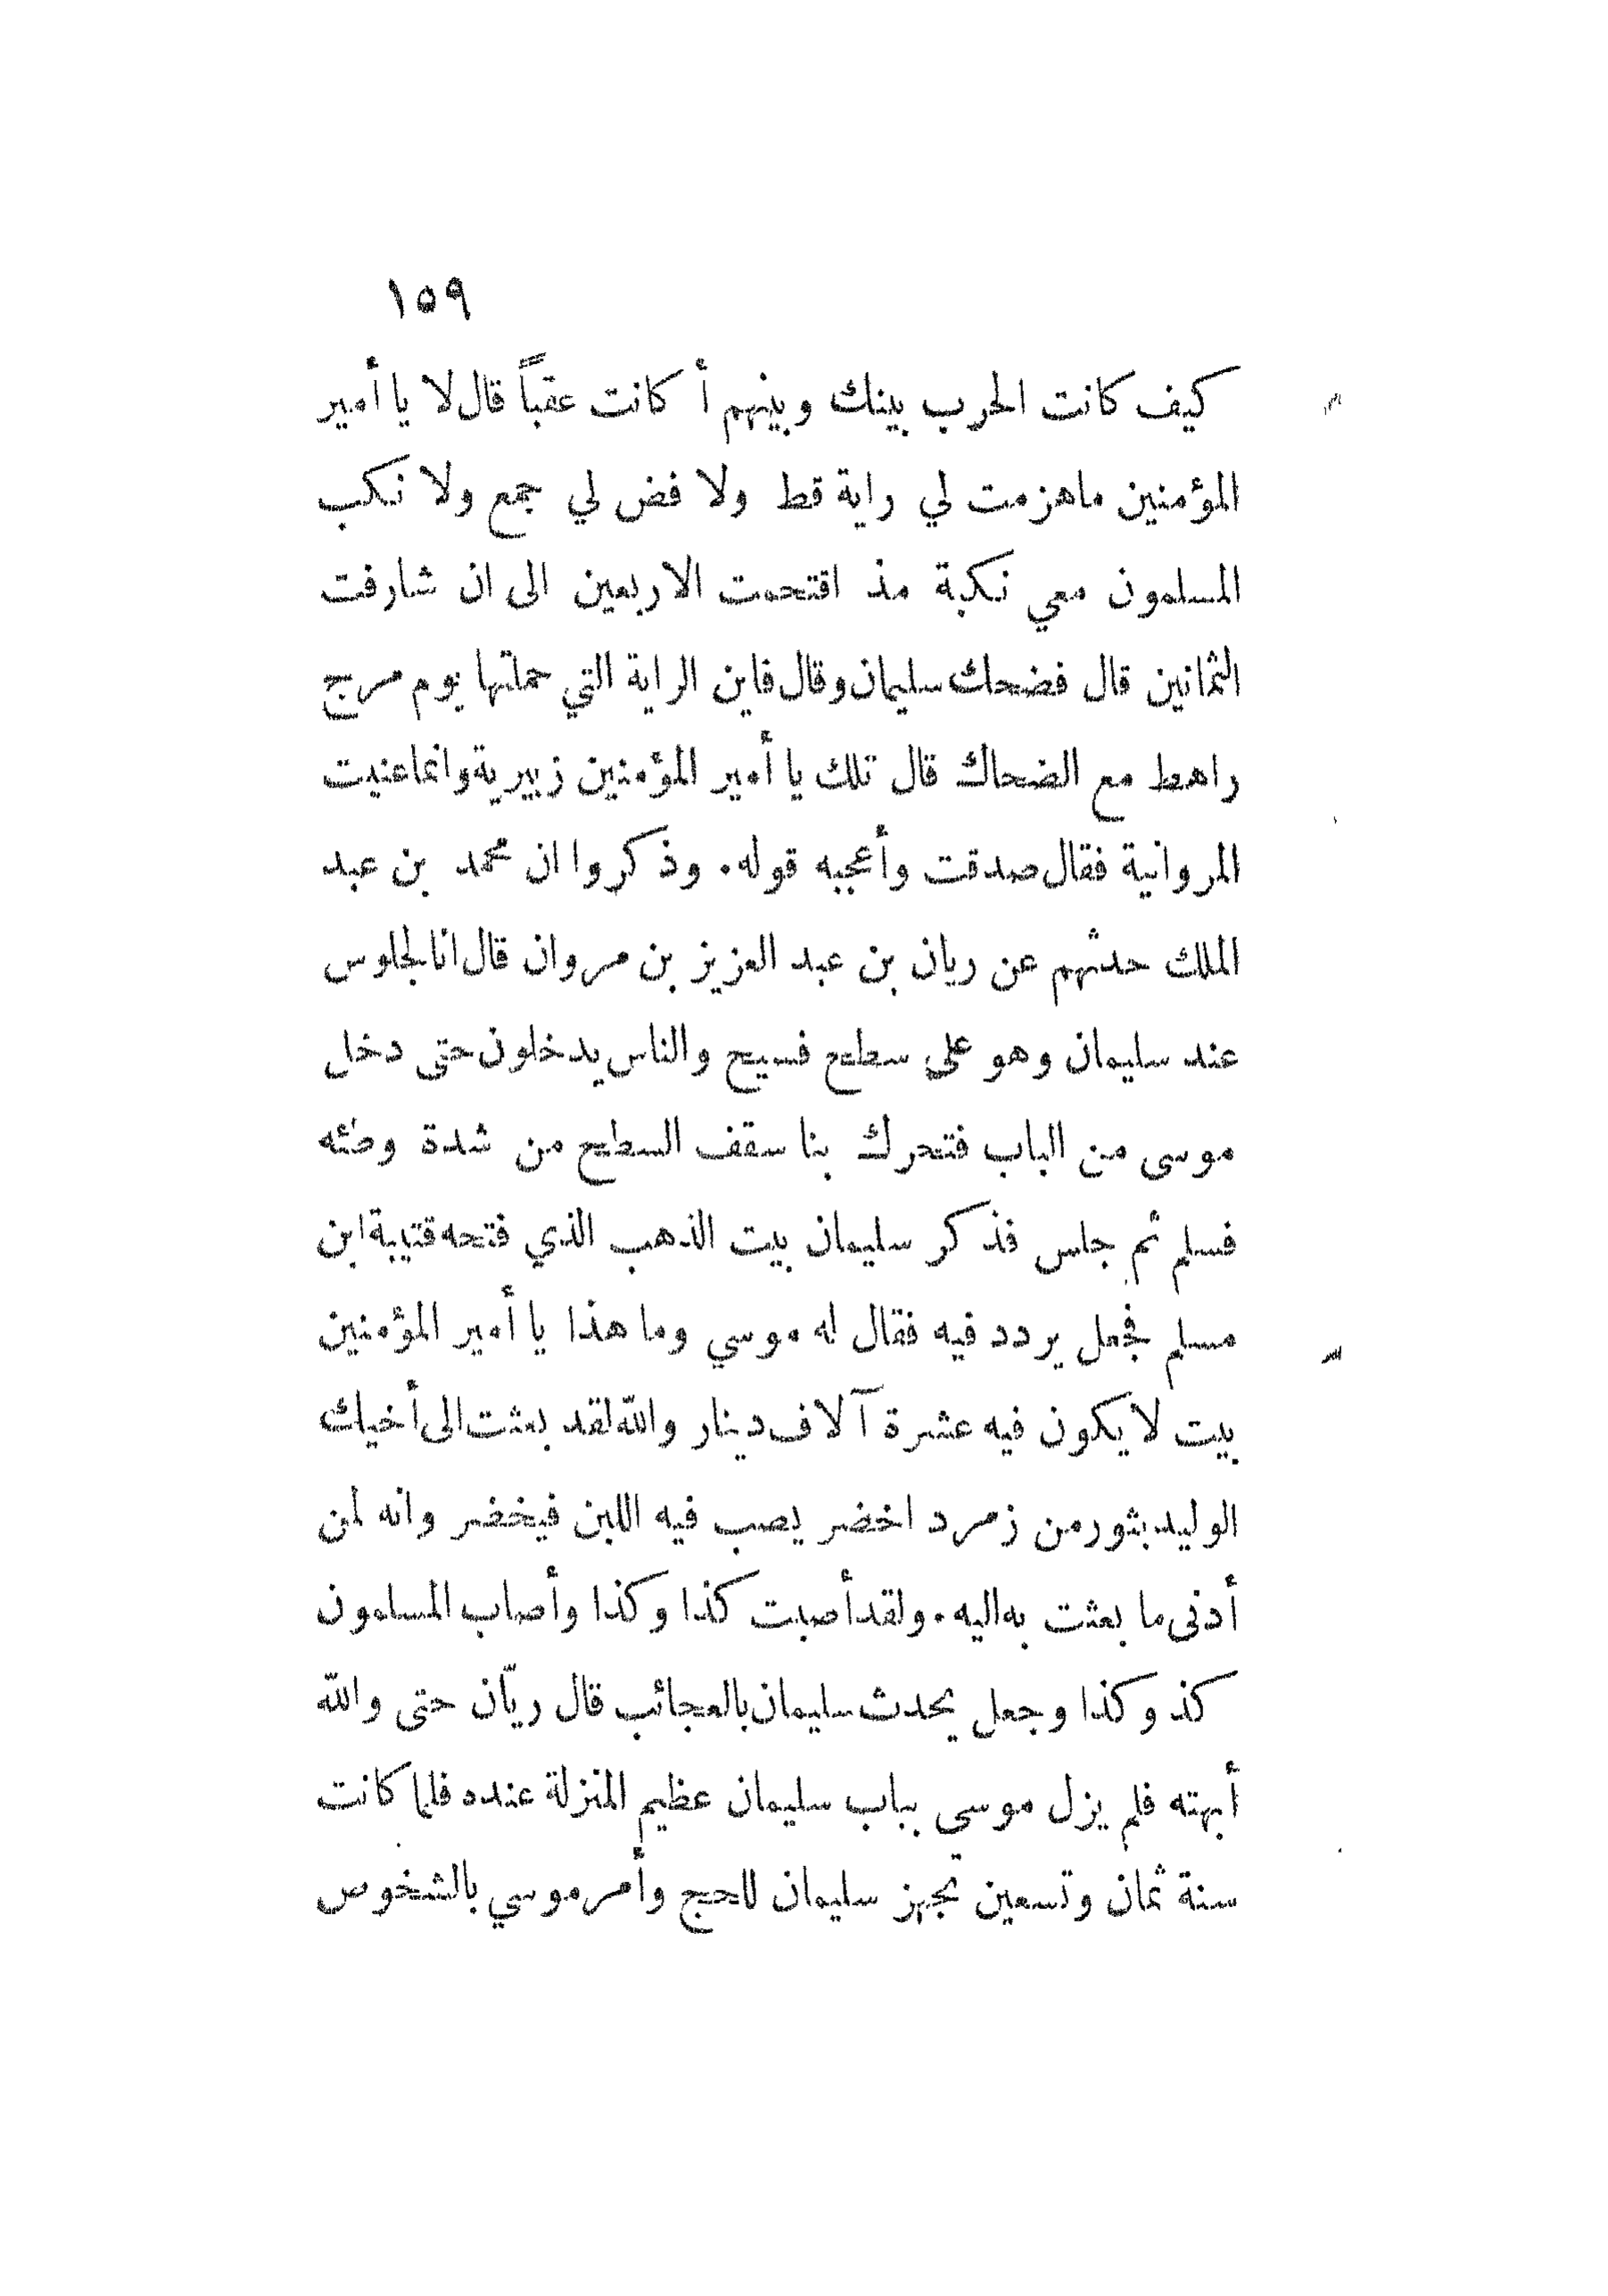 ١٥٩
كيف كانت الحرب بينك وبينهم أ كانت عقباً قال لا يا أمير
المؤمنين ماهزمت لي راية قط ولا فض لي جمع ولا نكب
المسلمون معي نكبة مذ اقتحمت الاربعين الى ان شارفت
الثمانين قال فضحك سليمان وقال فاين الراية التي حملتها يوم مرج
راهط مع الضحاك قال تلك يا أمير المؤمنين زبيرية وانما عنيت
المروانية فقال صدقت وأعجبه قوله. وذكروا ان محمد بن عبد
الملك حدثهم عن ريان بن عبد العزيز بن مروان قال انا لجلوس
عند سليمان وهو على سطح فسيح والناس يدخلون حتى دخل
موسى من الباب فتحرك بنا سقف السطح من شدة وطئه
فسلم ثم جلس فذكر سليمان بيت الذهب الذي فتحه قتيبة ابن
مسلم فجعل يردد فيه فقال له موسي وما هذا يا أمير المؤمنين
بيت لا يكون فيه عشرة آلاف دينار والله لقد بعثت الى أخيك
الوليد بثور من زمرد اخضر يصب فيه اللبن فيخضر وانه لمن
أدنى ما بعثت به اليه. ولقد أصبت كذا وكذا وأصاب المسلمون
كذ وكذا وجعل يحدث سليمان بالعجائب قال ريّان حتى والله
أبهته فلم يزل موسي بباب سليمان عظيم المنزلة عنده فلما كانت
سنة ثمان وتسعين تجهز سليمان للحج وأمر موسي بالشخوص